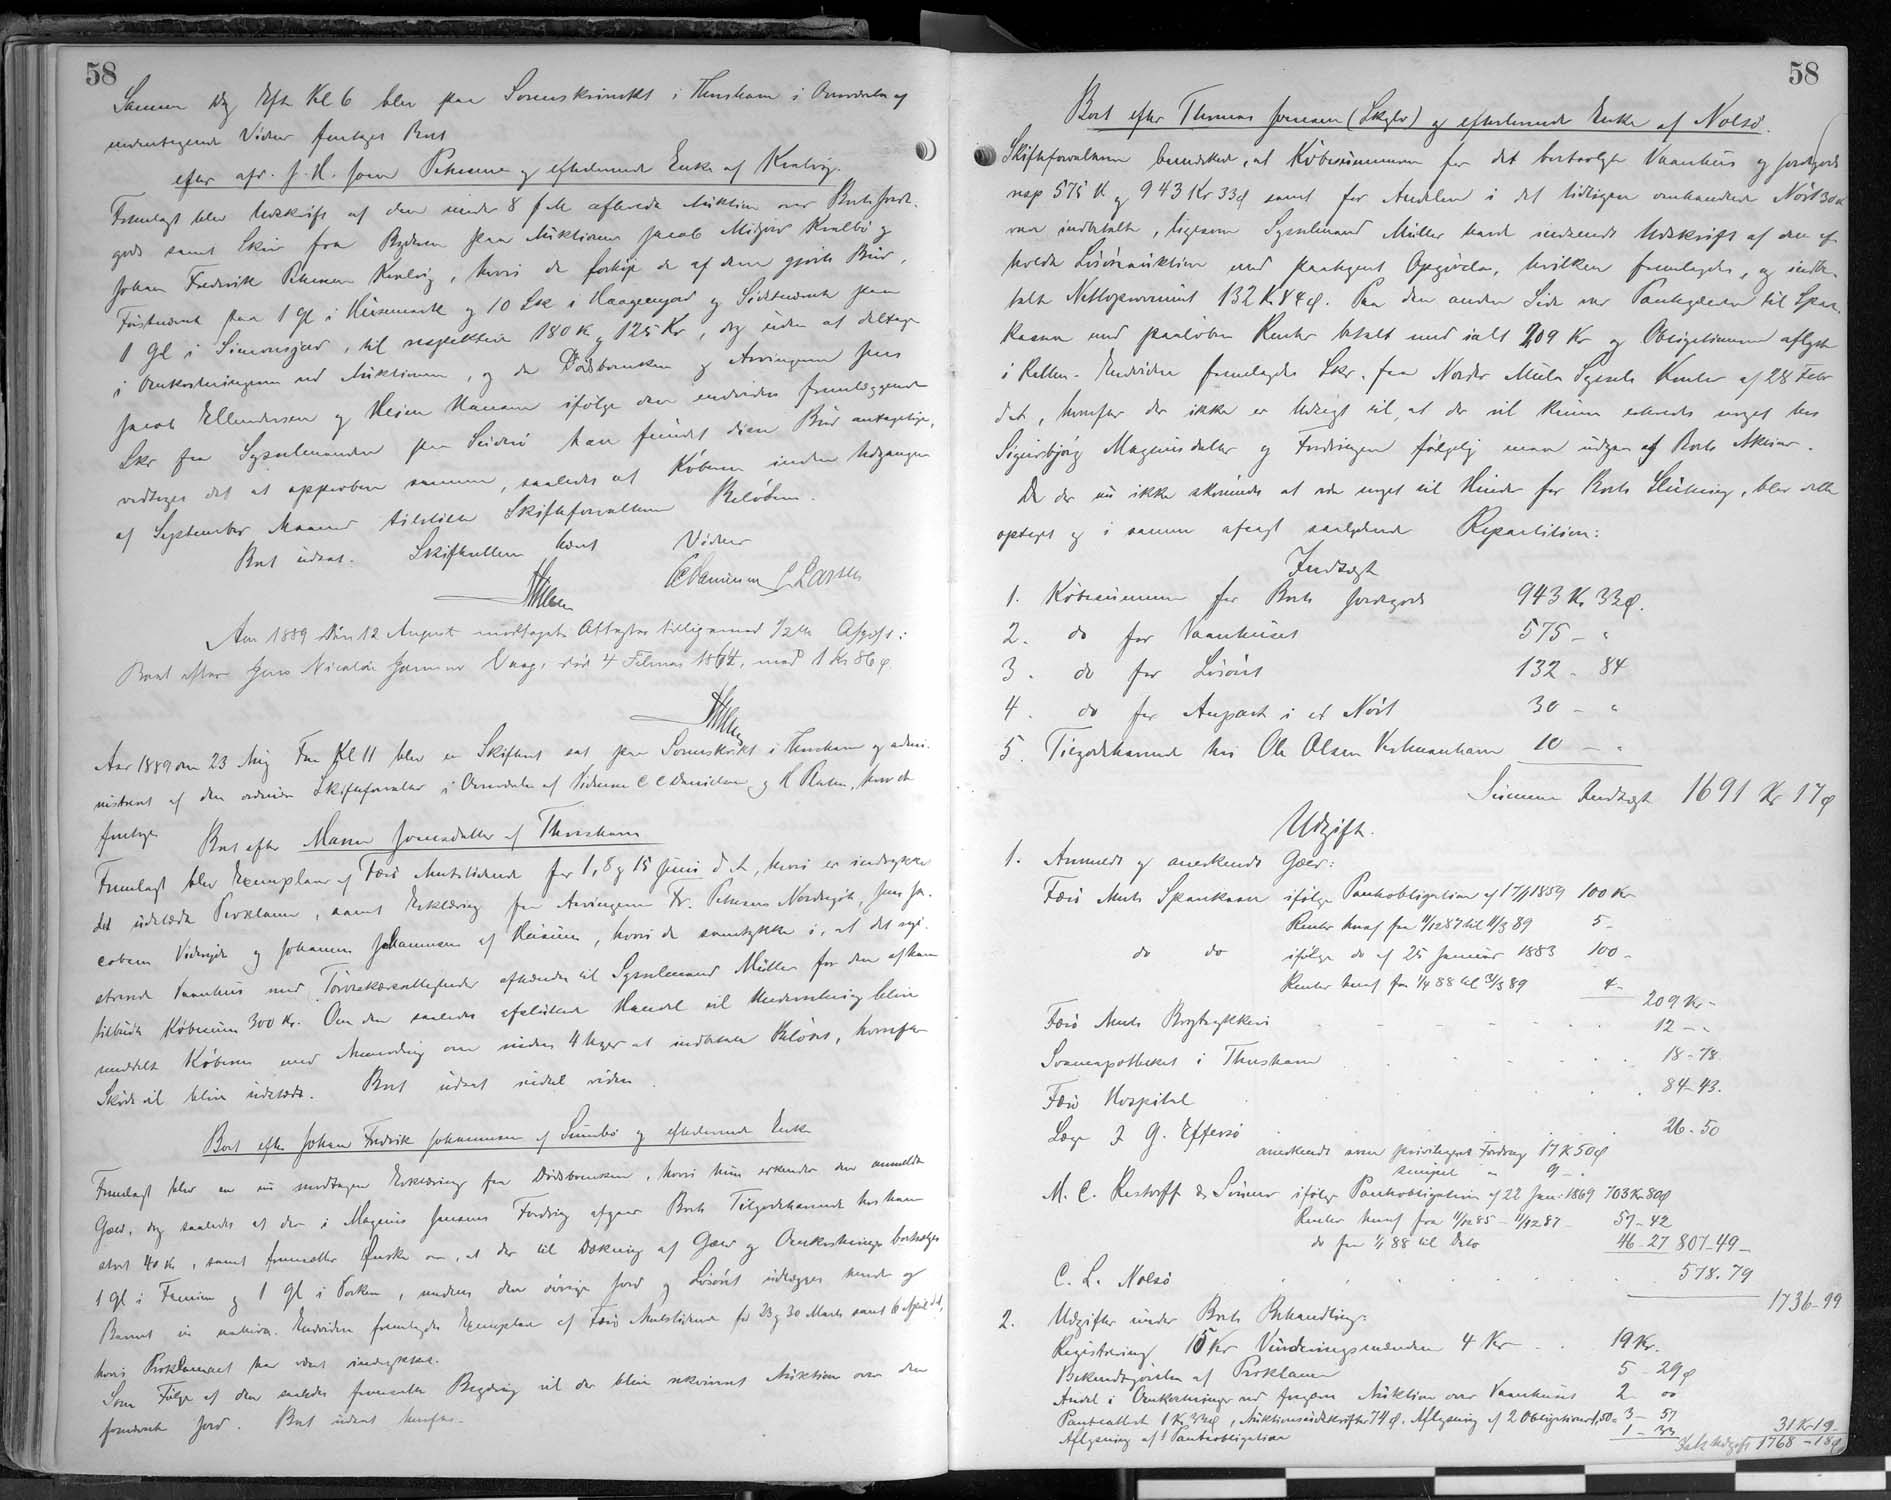 58
Samme Dag Efter Kl 6 blev paa Sorenskriverkt. i Thorshavn i Overværelse af
undertegnede Vidner foretaget Boet
efter afd. J. H. Joen Petersen og efterlevende Enke af Kvalvig.
Fremlagt blev Udskrift af den under 8 f M afholdte Auktion over Boets Jorde-
gods samt Skr fra Byderne paa Auktionen Jacob Kvalbø og
Johan Frederik Petersen Kvalvig, hvori de forhøje de af dem gjorte Bud,
Førstnævnte paa 1 Gl i Husemark og 10 Sk i Haagengjord og Sidstnævnte paa
1 Gl i Simonsgjord, til respektive 180 Kr og 125 Kr, dog uden at deltage
i Omkostningerne ved Auktionen, og da Dødsboenken og Arvingerne Jens
Jacob Ellendersen og Hansen ifølge den endvidere fremlæggende
Skr fra Sysselmanden paa Suderø har fundet disse Bud antagelige,
vedtoges det at approbere samme, saaledes at Køberne inden Udgangen
af September Maaned tilstiller Skifteforvalteren Beløbene.
Boet udsat. Skifteretten hævet Vidner
CC Danielsen J. Larsen
Aar 1889 den 12 August modtaget Attester tilligemed 1/2 % Afgift i
Boet efter Jens Nicolai Jensen Vaag, død 4 Februar 1864, med 1 Kr 86 ø.
Aar 1889 den 23 Aug Fm Kl 11 blev en Skifteret sat paa Sorenskrivkt i Thorshavn og admi-
nistreret af den ordinære Skifteforvalter i Overværelse af Vidnerne C C Danielsen og H , hvorda
foretoges Boet efter Maren Joensdatter af Thorshavn
Fremlagt blev Exemplarer af Færø Amtstidende for 1, 8 og 15 Juni d A, hvori er indrykket
det udstedte Proklama, samt Erklæring fra Arvingerne Fr. Petersen Nordragøta, Jens Ja-
cobsen Viderejde og Johannes Johannesen af Husum, hvori de samtykke i, at det regi-
strerede Vaanhus med Tørveskærrettigheder afhændes til Sysselmand Müller for den af ham
tilbudte Købesum 300 Kr. Om den saaledes afsluttede Handel vil Underretning blive
meddelt Køberen med Anmodning om inden 4 Uger at indbetale Beløbet, hvorefter
Skøde vil blive udstedt. Boet udsat indtil videre
Boet efter Johan Fredrik Johannesen af Sumbø og efterlevende Enke
Fremlagt blev en nu modtagen Erklæring fra Dødsboenken, hvori hun erkender den anmeldte
Gæld, dog saaledes at der i Magnus Jensens Fordring afgaar Boets Tilgodehavende hos ham
stort 40 Kr, samt fremsætter Ønske om, at der til Dækning af Gæld og Omkostninger bortsælges
1 Gl i Famien og 1 Gl i Vorken, medens den øvrige Jord og Løsøret udlægges hende og
Barnet in natura. Endvidere fremlagdes Exemplarer af Færø Amtstidende for 23 og 30 Marts samt 6 April d A,
hvori Proklamaet har været indrykket.
Som Følge af den saaledes fremsatte Begæring vil der blive rekvireret Auktion over den
fornævnte Jord. Boet udsat herefter.
58
Boet efter Thomas Joensen (Skylv) og efterlevende Enke af Nolsø.
Skifteforvalteren bemærkede, at Købesummerne for det bortsolgte Vaanhus og Jordegods
resp 575 K og 943 Kr 33 ø samt for Andelen i det tidligere omhandlede Nøst 30 K
var indbetalte, ligesom Sysselmand Müller havde indsendt Udskrift af den af-
holdte Løsøreauktion med paategnet Opgørelse, hvilken fremlagdes, og indbe-
talt Nettoprovenuet 132 K 84 ø. Paa den anden Side var Pantegælden til Spar-
kassen med paaløbne Renter betalt med ialt 209 Kr og Obligationerne aflyste
i Retten. Endvidere fremlagdes Skr. fra Nordre Mula Syssels Kontor af 28 Febr
d A, hvorefter der ikke er Udsigt til, at der vil kunne erholdes noget hos
Sigurbjørg Magnusdatter og Fordringen følgelig maa udgaa af Boets Aktiver.
Da der nu ikke skønnedes at være noget til Hinder for Boets Slutning, blev dette
optaget og i samme afsagt saalydende Repartition:
Indtægt
1. Købesummen for Boets Jordegods 943 Kr 33 ø.
2. do for Vaanhuset 575 - "
3. do for Løsøret 132 - 84
4. do for Anpart i et Nøst 30 - "
5. Tilgodehavende hos Ole Olsen Vestmanhavn 10 - "
Summa Indtægt 1691 Kr 17 ø
Udgift.
1. Anmeldt og anerkendt Gæld:
Færø Amts Sparekasse ifølge Pantobligation af 17/1 1859 100 Kr
Renter heraf fra 11/12 87 til 11/3 89 5 -
do do ifølge do af 25 Januar 1883 100 -
Renter heraf fra 1/4 88 til 31/3 89 4 -
209 Kr -
Færø Amts Bogtrykkeri 12 - -
Svaneapotheket i Thorshavn 18 - 78
Færø Hospital 84 - 43.
Læge J G. Effersø 26 - 50
anerkendt som privilegeret Fordring 17 K 50 ø
simpel " 9 - "
M. C. Restorff & Sønner ifølge Pantobligation af 22 Jan: 1869 703 Kr 80 ø
Renter heraf fra 11/12 85 - 11/12 87 57 - 42
do fra 1/1 88 til Dato 46 - 27 807 - 49 -
C. L. Nolsø 578. 79
1736 - 99
2. Udgifter under Boets Behandling:
Registrering 15 Kr Vurderingsmændene 4 Kr 19 Kr.
Bekendtgørelse af Proklama 5 - 29 ø
Andel i Omkostninger ved forgæves Auktion over Vaanhuset 2 - 00
Panteattest 1 Kr 33 ø, Auktionsudskrifter 74 ø, Aflysning af 2 Obligationer 1,50 = 3 - 57
Aflysning af 1 Panteobligation 1 - 33
31 Kr 19 -
Ialt Udgift 1768 - 18 ø